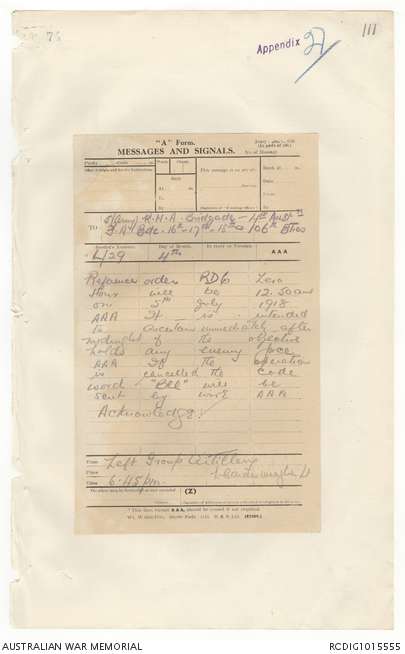 111
Appendix 21
"A" Form.
MESSAGES AND SIGNALS.
No. of Message
TO 5 (Army) R.H.A. Brigade - 4th Aust
F.A. Bde - 16th - 17th - 18th - 106th Bties
Sender's Number.
Day of Month.
In reply to Number.
AAA
L/29 4th
Reference order RD6 Zero
Hour will be 12.50 am
on 5th July 1918
AAA It is intended
to ascertain immediately after
midnight if the objective
holds any enemy force
AAA If the operation
is cancelled the Code
word "BEE" will be
sent by wire AAA
Acknowledge
From Left Group Artillery
Place
Time 6.45 pm.
(Z)
* This line, except AAA, should be erased if not required.
AUSTRALIAN WAR MEMORIAL
RCDIG1015555